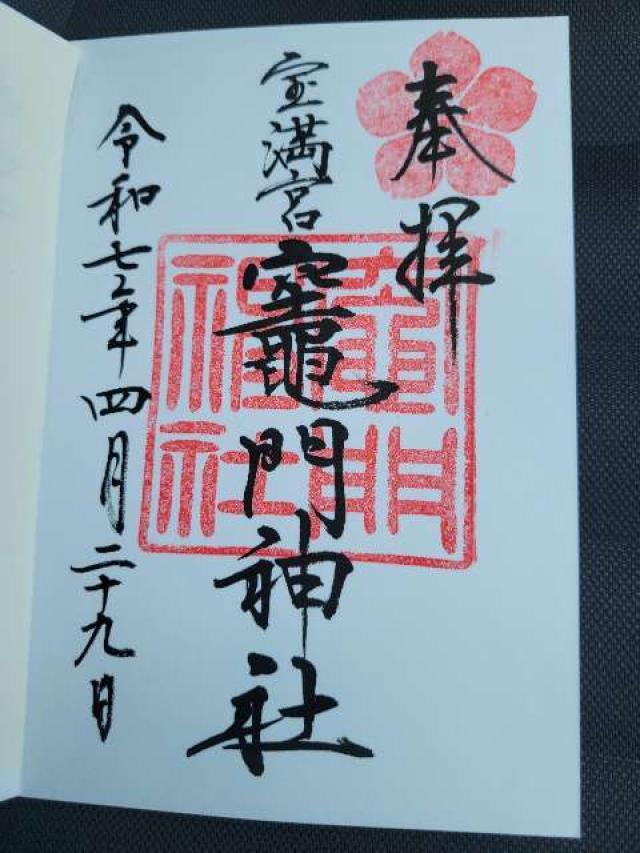 奉拝
宝満宮
竈門神社
令和七年四月二十九日
竈門神社